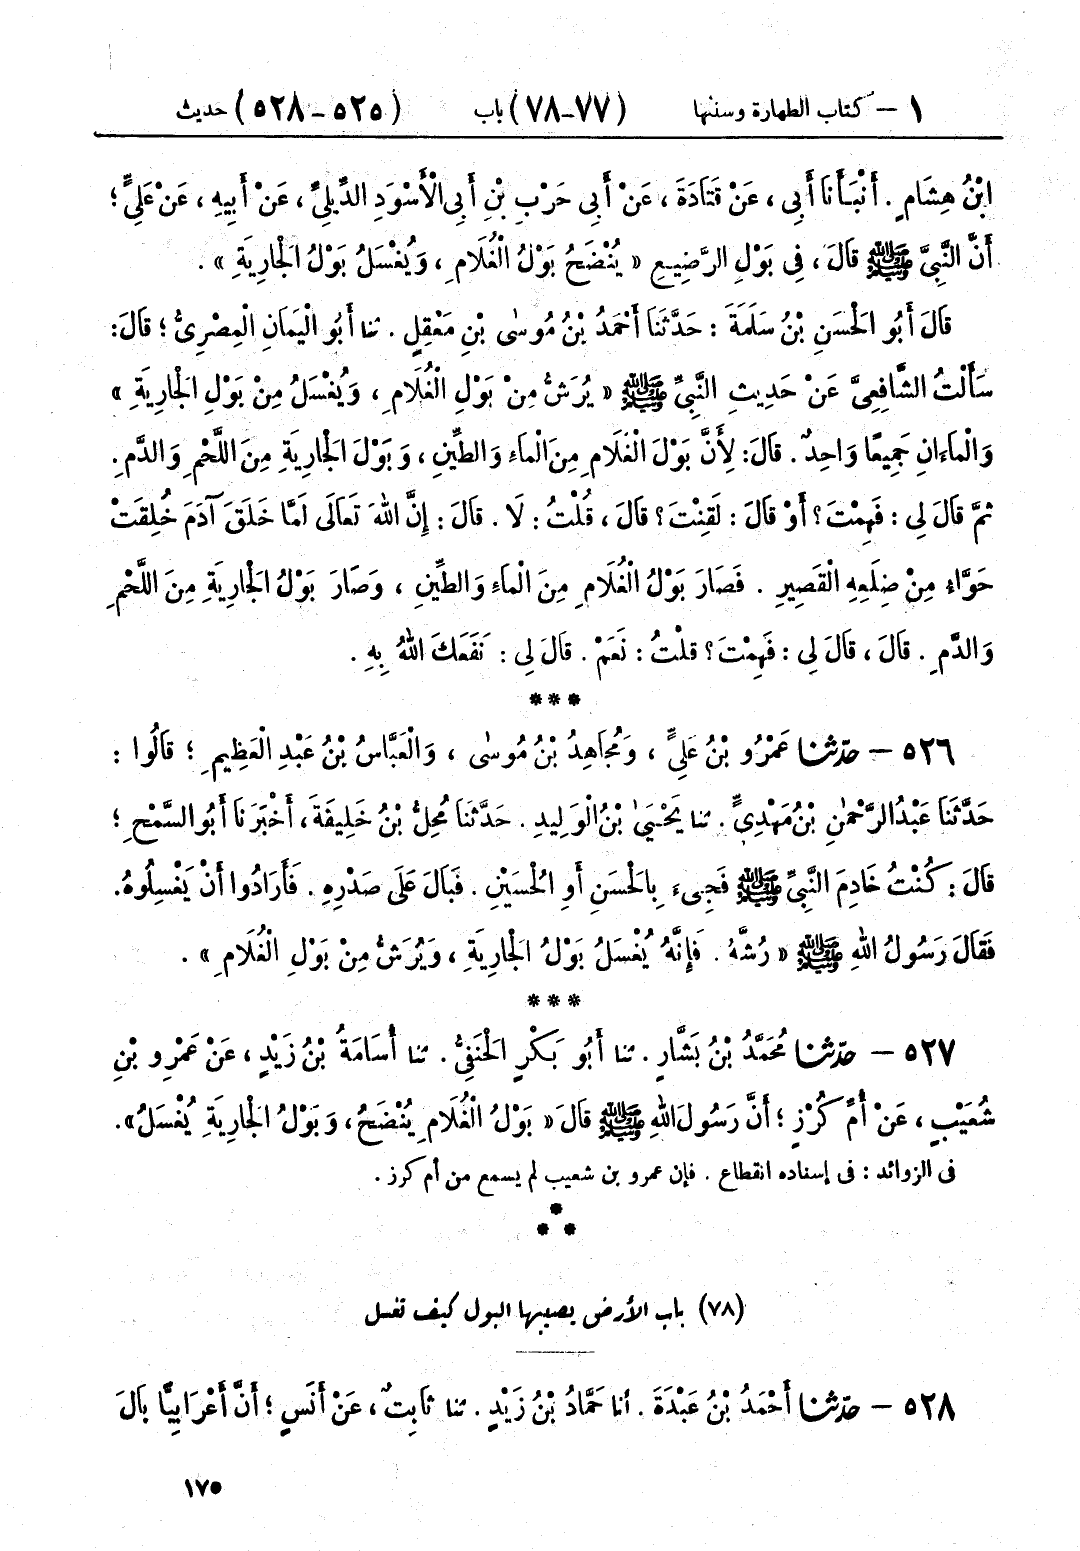 ١ – كتاب الطهارة وسننها (٧٧-٧٨) باب (٥٢٥-٥٢٨) حديث
ابْنُ هِشَامٍ . أَنْبَأَنَا أَبِى ، عَنْ قَتَادَةَ ، عَنْ أَبِى حَرْبِ بْنِ أَبِى الْأَسْوَدِ الدِّيلِىِّ ، عَنْ أَبِيهِ ، عَنْ عَلِىٍّ ؛
أَنَّ النَّبِىَّ ﷺ قَالَ ، فِى بَوْلِ الرَّضِيعِ « يُنْضَحُ بَوْلُ الْغُلَامِ ، وَيُغْسَلُ بَوْلُ الْجَارِيَةِ » .
قَالَ أَبُو الْحَسَنِ بْنُ سَلَمَةَ : حَدَّثَنَا أَحْمَدُ بْنُ مُوسٰى بْنِ مَعْقِلٍ . ثنا أَبُو الْيَمَانِ الْمِصْرِىُّ ؛ قَالَ :
سَأَلْتُ الشَّافِعِىَّ عَنْ حَدِيثِ النَّبِىِّ ﷺ « يُرَشُّ مِنْ بَوْلِ الْغُلَامِ ، وَيُغْسَلُ مِنْ بَوْلِ الْجَارِيَةِ »
وَالْمَاءَانِ جَمِيعًا وَاحِدٌ . قَالَ : لِأَنَّ بَوْلَ الْغُلَامِ مِنَ الْمَاءِ وَالطِّينِ ، وَبَوْلَ الْجَارِيَةِ مِنَ اللَّحْمِ وَالدَّمِ .
ثُمَّ قَالَ لِى : فَهِمْتَ ؟ أَوْ قَالَ : لَقِنْتَ ؟ قَالَ ، قُلْتُ : لَا . قَالَ : إِنَّ اللهَ تَعَالَى لَمَّا خَلَقَ آدَمَ خُلِقَتْ
حَوَّاءُ مِنْ ضِلَعِهِ الْقَصِيرِ . فَصَارَ بَوْلُ الْغُلَامِ مِنَ الْمَاءِ وَالطِّينِ ، وَصَارَ بَوْلُ الْجَارِيَةِ مِنَ اللَّحْمِ
وَالدَّمِ . قَالَ ، قَالَ لِى : فَهِمْتَ ؟ قلْتُ : نَعَمْ . قَالَ لِى : نَفَعَكَ اللهُ بِهِ .
* * *
٥٢٦ – حدّثنا عَمْرُو بْنُ عَلِىٍّ ، وَمُجَاهِدُ بْنُ مُوسٰى ، وَالْعَبَّاسُ بْنُ عَبْدِ الْعَظِيمِ ؛ قَالُوا :
حَدَّثَنَا عَبْدُ الرَّحْمٰنِ بْنُ مَهْدِىٍّ . ثنا يَحْيَىٰ بْنُ الْوَلِيدِ . حَدَّثَنَا مُحِلُّ بْنُ خَلِيفَةَ ، أَخْبَرَنَا أَبُو السَّمْحِ ؛
قَالَ : كُنْتُ خَادِمَ النَّبِىِّ ﷺ فَجِىءَ بِالْحَسَنِ أَوِ الْحُسَيْنِ . فَبَالَ عَلَى صَدْرِهِ . فَأَرَادُوا أَنْ يَغْسِلُوهُ .
فَقَالَ رَسُولُ اللهِ ﷺ « رُشَّهُ . فَإِنَّهُ يُغْسَلُ بَوْلُ الْجَارِيَةِ ، وَيُرَشُّ مِنْ بَوْلِ الْغُلَامِ » .
* * *
٥٢٧ – حدّثنا مُحَمَّدُ بْنُ بَشَّارٍ . ثنا أَبُو بَكْرٍ الْحَنَفِىُّ . ثنا أُسَامَةُ بْنُ زَيْدٍ ، عَنْ عَمْرِو بْنِ
شُعَيْبٍ ، عَنْ أُمِّ كُرْزٍ ؛ أَنَّ رَسُولَ اللهِ ﷺ قَالَ « بَوْلُ الْغُلَامِ يُنْضَحُ ، وَبَوْلُ الْجَارِيَةِ يُغْسَلُ » .
فى الزوائد : فى إسناده انقطاع . فإن عمرو بن شعيب لم يسمع من أم كرز .
* * *
(٧٨) باب الأرض يصيبها البول كيف تغسل
٥٢٨ – حدّثنا أَحْمَدُ بْنُ عَبْدَةَ . أنا حَمَّادُ بْنُ زَيْدٍ . ثنا ثَابِتٌ ، عَنْ أَنَسٍ ؛ أَنَّ أَعْرَابِيًّا بَالَ
١٧٥